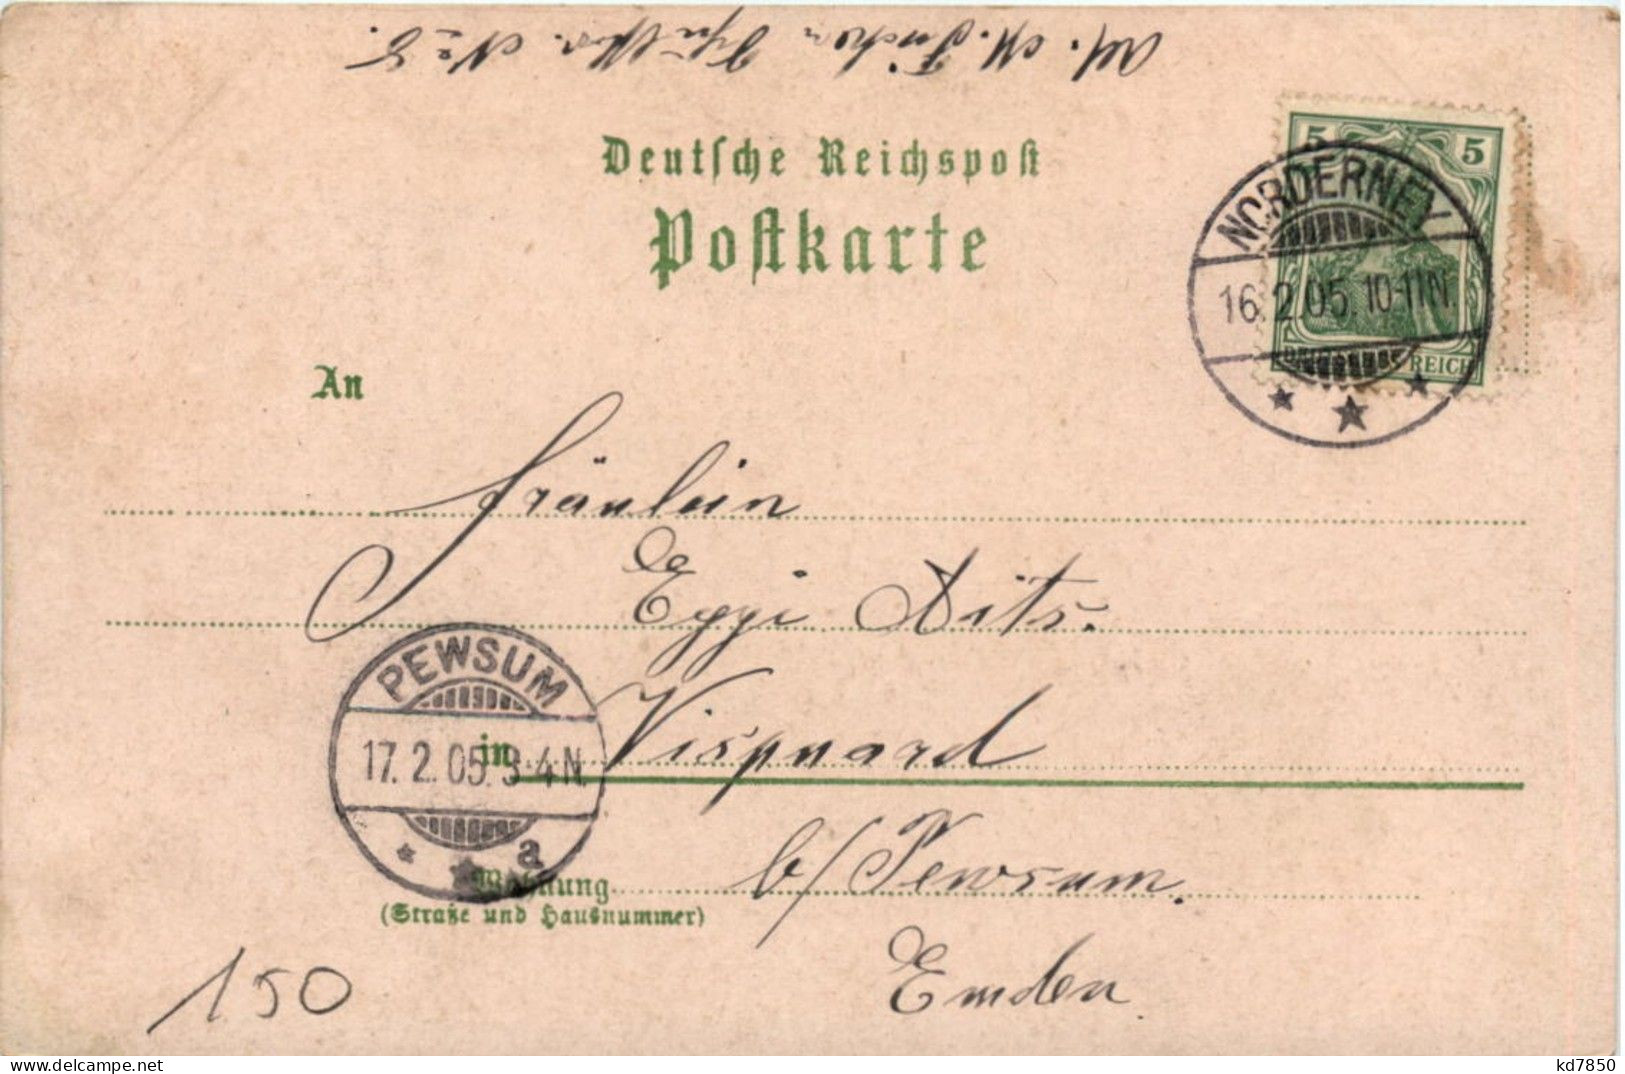 Deutsche Reichspost
Postkarte
5 5
REICH
NORDERNEY
16.2.05.10-11N.
An
Fräulein
Eggi Aits.
in Visquard
PEWSUM
17.2.05.3-4N.
a
Wohnung b/Pewsum.
(Straße und Hausnummer)
Emden
150
kd7850